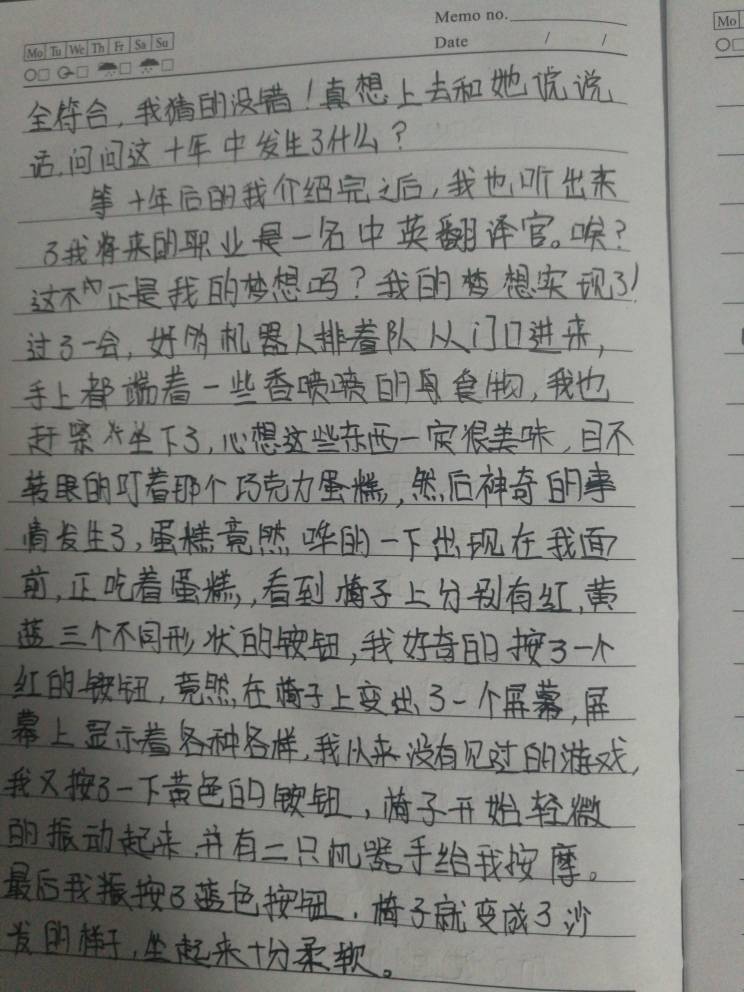 Memo no.
Mo Tu We Th Fr Sa Su
Date / /
全符合，我猜的没错！真想上去和她说说
话，问问这十年中发生了什么？
等十年后的我介绍完之后，我也听出来
了我将来的职业是一名中英翻译官。唉？
这不正是我的梦想吗？我的梦想实现了！
过了一会，好的机器人排着队从门口进来，
手上都端着一些香喷喷的食物，我也
赶紧坐下了，心想这些东西一定很美味，目不
转眼的盯着那个巧克力蛋糕，然后神奇的事
情发生了，蛋糕竟然哗的一下出现在我面
前，正吃着蛋糕，，看到椅子上分别有红，黄
蓝三个不同形状的按钮，我好奇的按了一个
红的按钮，竟然在椅子上变出了一个屏幕，屏
幕上显示着各种各样，我从来没有见过的游戏，
我又按了一下黄色的按钮，椅子开始轻微
的振动起来，并有二只机器手给我按摩。
最后我按了蓝色按钮，椅子就变成了沙
发的样子，坐起来十分柔软。
Mo